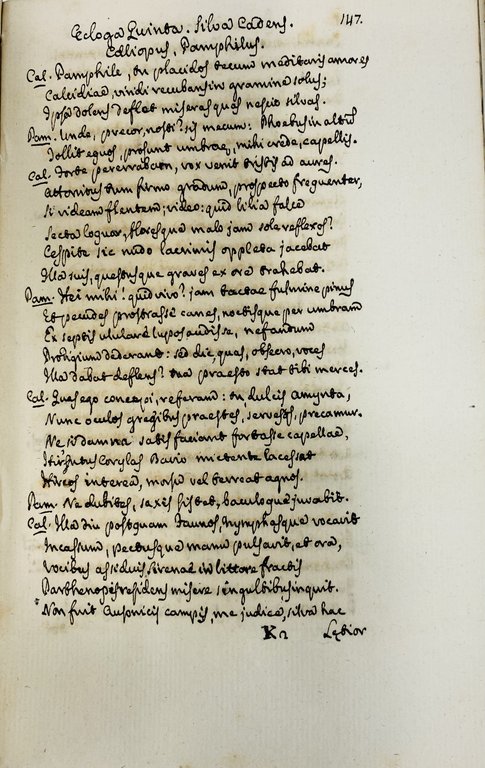 147.
Ecloga Quinta. Silva Cadens.
Calliopus, Pamphilus.
Cal. Pamphile, tu placidos tecum meditaris amores
Calcidiae, viridi recubans in gramine solus;
Ipsa dolens deflet miseras quas nescio silvas.
Pam. Unde, precor, nosti? sis mecum: Phoebus in altum
Tollit equos, prosunt umbrae, mihi crede, capellis.
Cal. Forte pererrabam, vox venit tristis ad aures.
Attonitus tum firmo gradum, prospecto frequenter,
Si videam flentem; video: quid lilia falce
Secta loquar, floresque malo jam sole reflexos?
Cespite sic nudo lacrimis oppleta jacebat
Illa suis, questusque graves ex ore trahebat.
Pam. Hei mihi! quid vivo? jam tactae fulmine pinus
Et pecudes prostrasse canes, noctisque per umbram
Ex septis ululare lupos audisse, nefandum
Prodigium dederant: sed dic, quas, obsecro, voces
Illa dabat deflens? tua praesto stat tibi merces.
Cal. Quas ego concepi, referam: tu dulcis Amynta,
Nunc oculos gregibus praestes, serves, precamur.
Ne damna satis faciant fortasse capellae,
Hirsutus Corylas Bavio mictente lacessat
Hircos interea, morsu vel terreat agnos.
Pam. Ne dubites, saxis sistet, baculoque juvabit.
Cal. Illa diu postquam Faunos, nymphasque vocavit
Incassum, pectusque manu pulsavit, et ora,
Vocibus assiduis, Sirenae in littore fractis
Parthenopes residens misere singultibus inquit.
Non fuit Ausoniis campis, me judice, silva hac
K2 Lętior